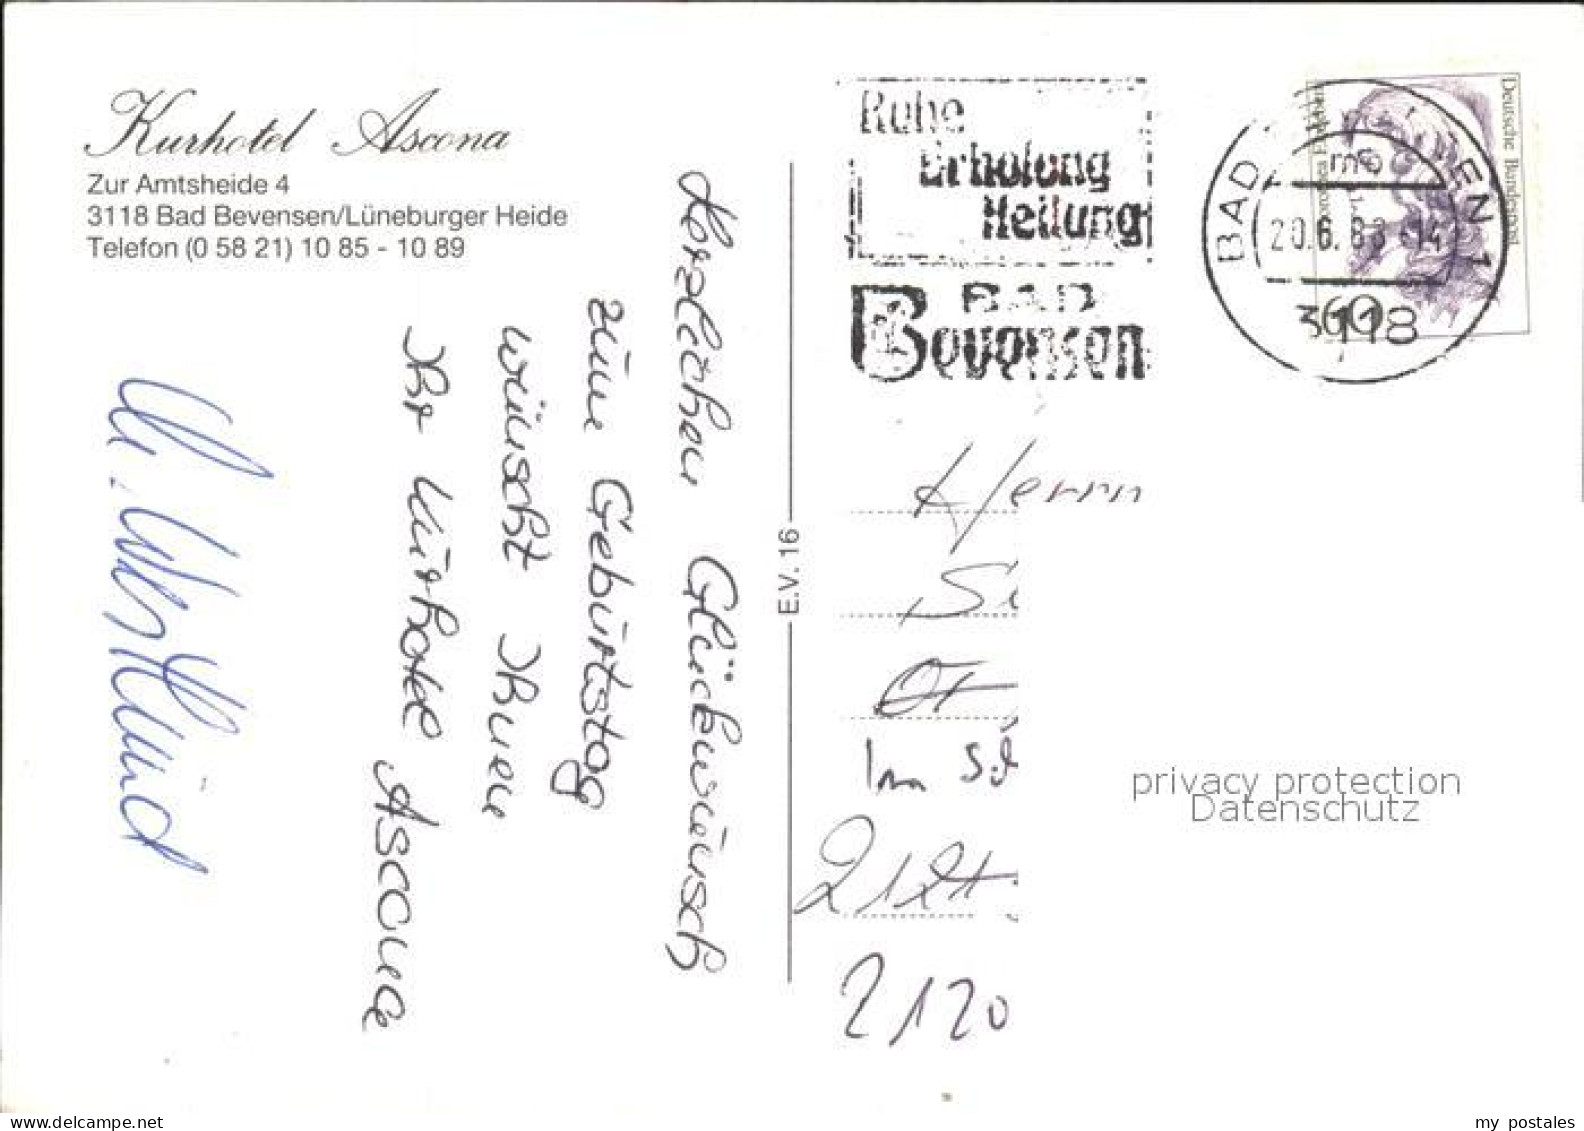 Kurhotel Ascona
Zur Amtsheide 4
3118 Bad Bevensen/Lüneburger Heide
Telefon (0 58 21) 10 85 - 10 89
Herzlichen Glückwunsch
zum Geburtstag
wünscht Ihnen
Ihr Kurhotel Ascona
E.V. 16
Ruhe
Erholung
Heilung
BAD
Bevensen
BAD
EN 1
mb
20.6.88-14
3118
Deutsche Bundespost
60
Herrn
Im
2120
privacy protection
Datenschutz
my postales